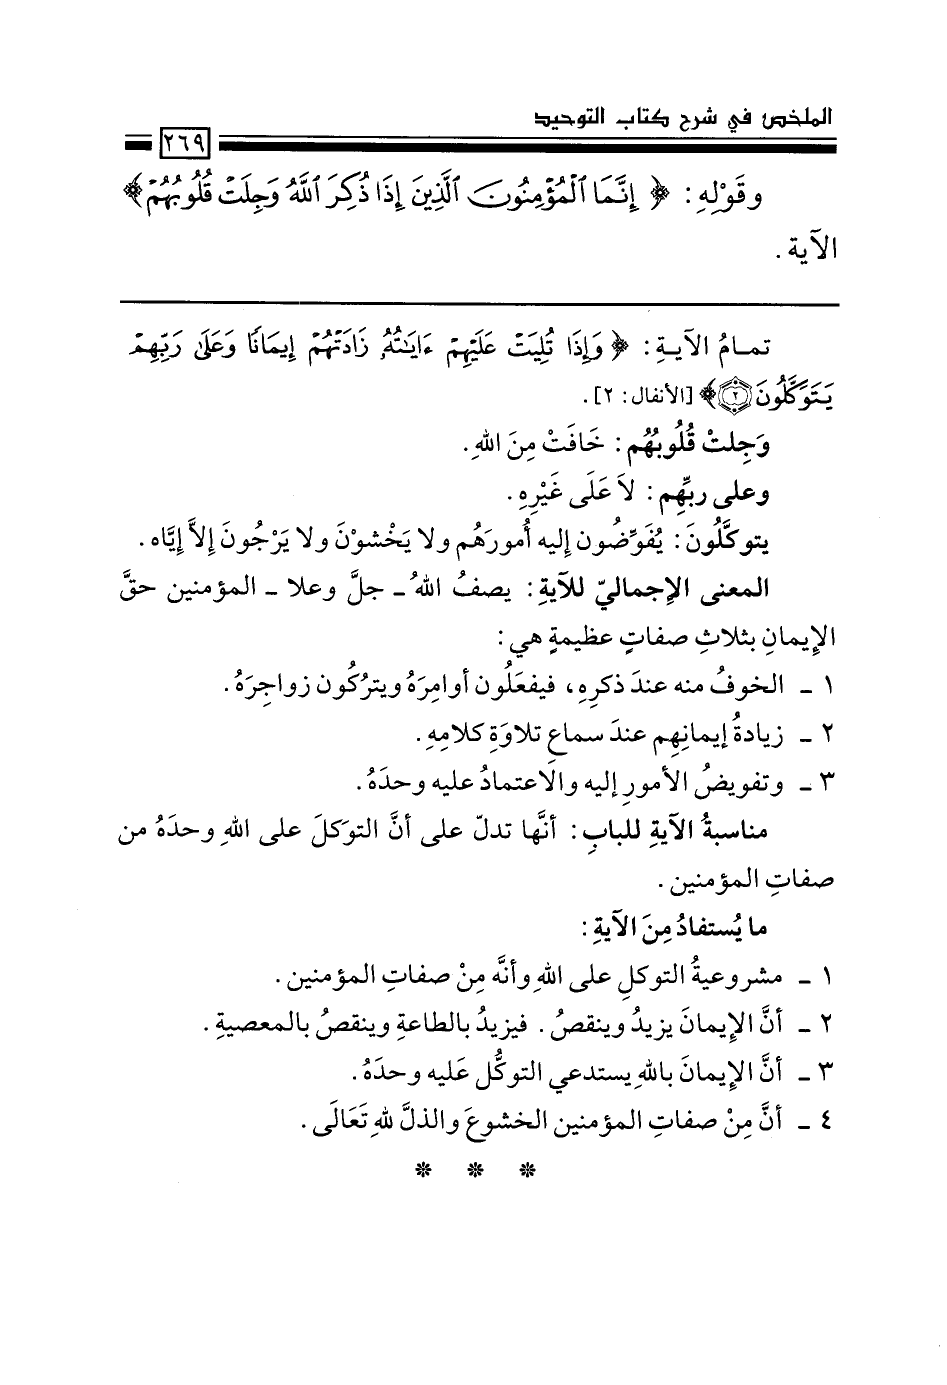 الملخص في شرح كتاب التوحيد
٢٦٩
وقَوْلِهِ: ﴿ إِنَّمَا ٱلْمُؤْمِنُونَ ٱلَّذِينَ إِذَا ذُكِرَ ٱللَّهُ وَجِلَتْ قُلُوبُهُمْ ﴾
الآية.
تمامُ الآيةِ: ﴿ وَإِذَا تُلِيَتْ عَلَيْهِمْ ءَايَـٰتُهُۥ زَادَتْهُمْ إِيمَـٰنًا وَعَلَىٰ رَبِّهِمْ
يَتَوَكَّلُونَ ٢ ﴾ [الأنفال: ٢].
وَجِلتْ قُلُوبُهُم: خَافَتْ مِنَ اللهِ.
وعلى ربِّهِم: لاَ عَلَى غَيْرِهِ.
يتوكَّلُونَ: يُفَوِّضُون إليه أُمورَهُم ولا يَخْشوْنَ ولا يَرْجُونَ إلاَّ إيَّاه.
المعنى الإجماليّ للآيةِ: يصفُ اللهُ ـ جلَّ وعلا ـ المؤمنين حقَّ
الإيمانِ بثلاثِ صفاتٍ عظيمةٍ هي:
١ ـ الخوفُ منه عندَ ذكرِهِ، فيفعَلُون أوامِرَهُ ويترُكُون زواجِرَهُ.
٢ ـ زيادةُ إيمانِهِم عندَ سماعِ تلاوَةِ كلامِهِ.
٣ ـ وتفويضُ الأمورِ إليه والاعتمادُ عليه وحدَهُ.
مناسبةُ الآيةِ للبابِ: أنَّها تدلّ على أنَّ التوَكلَ على اللهِ وحدَهُ من
صفاتِ المؤمنين.
ما يُستفادُ مِنَ الآيةِ:
١ ـ مشروعيةُ التوكلِ على اللهِ وأنَّه مِنْ صفاتِ المؤمنين.
٢ ـ أنَّ الإيمانَ يزيدُ وينقصُ. فيزيدُ بالطاعةِ وينقصُ بالمعصيةِ.
٣ ـ أنَّ الإيمانَ باللهِ يستدعي التوكُّل عَليه وحدَهُ.
٤ ـ أنَّ مِنْ صفاتِ المؤمنين الخشوعَ والذلَّ للهِ تَعَالَى.
* * *